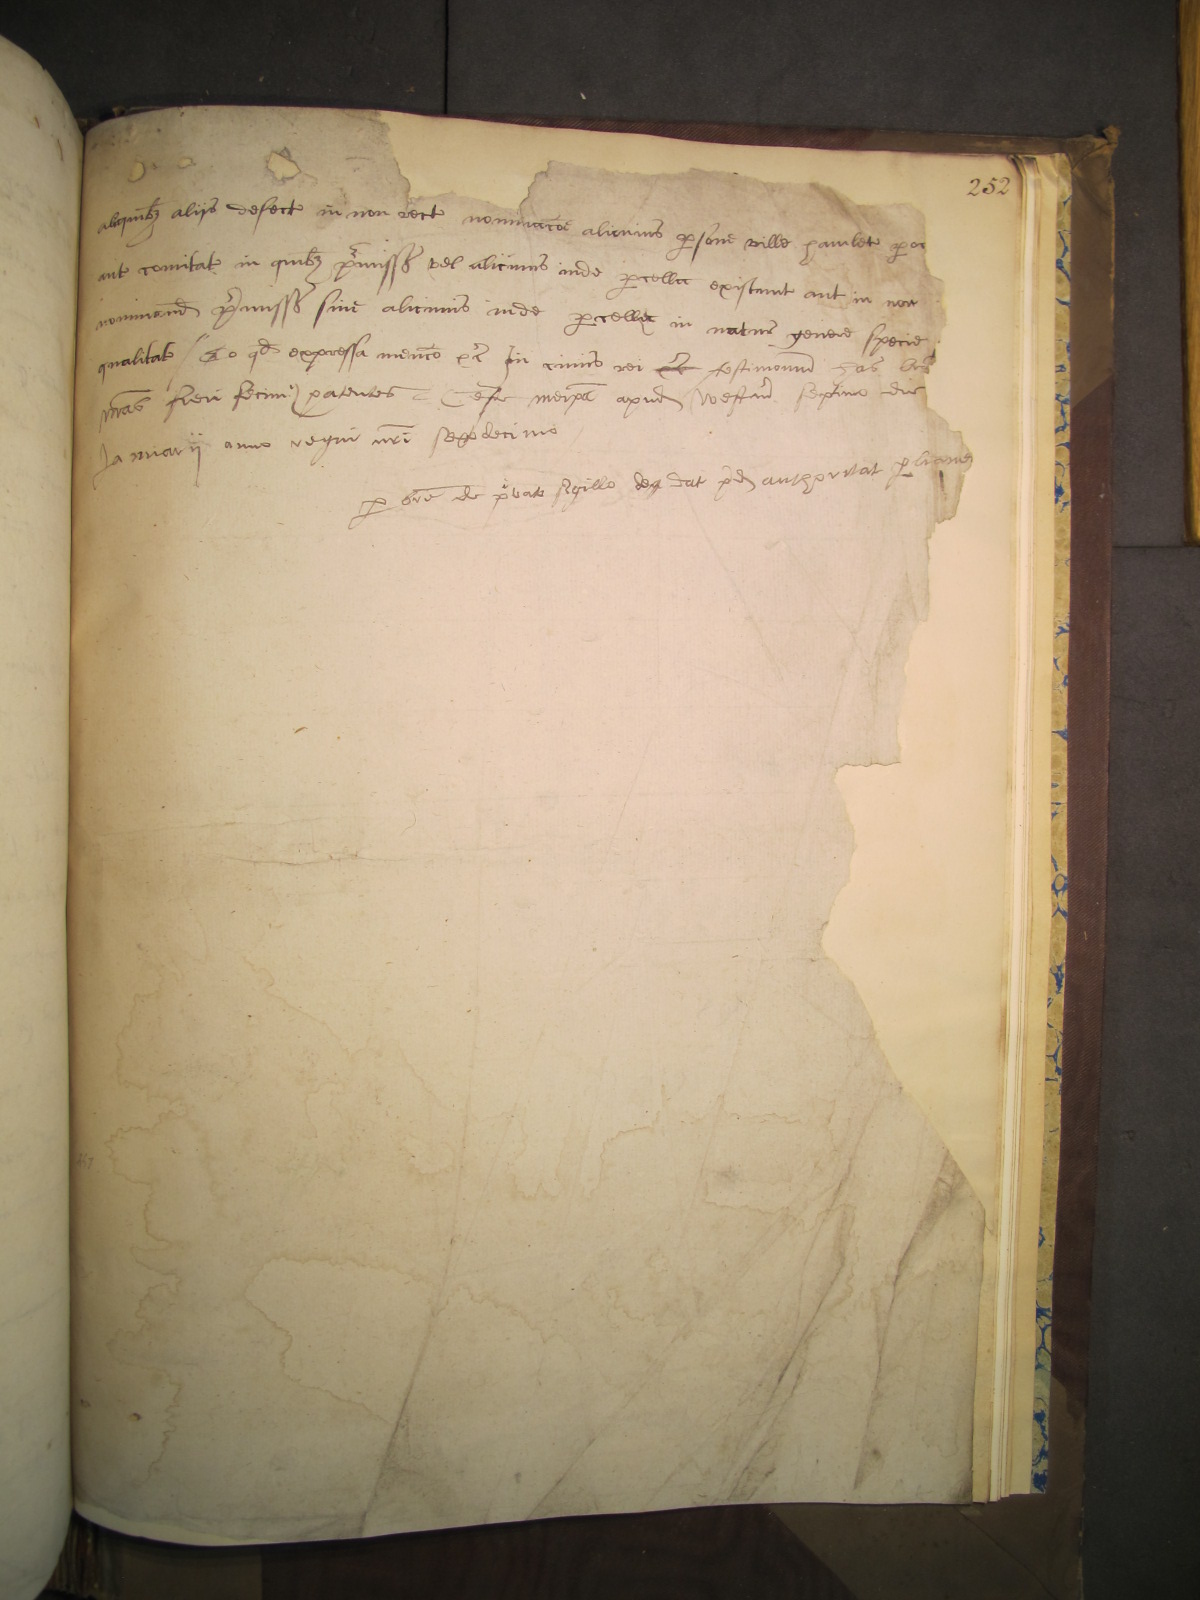 252
aliquibz aliis defect in non recte nominacoe alicuius psone ville hamlett poc
aut comitat in quibz pmissa vel alicuius inde pcella existunt aut in non
nominand pmissa sive alicuius inde pcella in natur genere specie
qualitat Eo qd expressa mencio &c In cuius rei &c testimonium has lras
nras fieri fecim patentes Teste meipo apud Westm septimo die
Januarij anno regni nri sexodecimo
p bre de pvato sigillo de dat pd auctoritat pliament